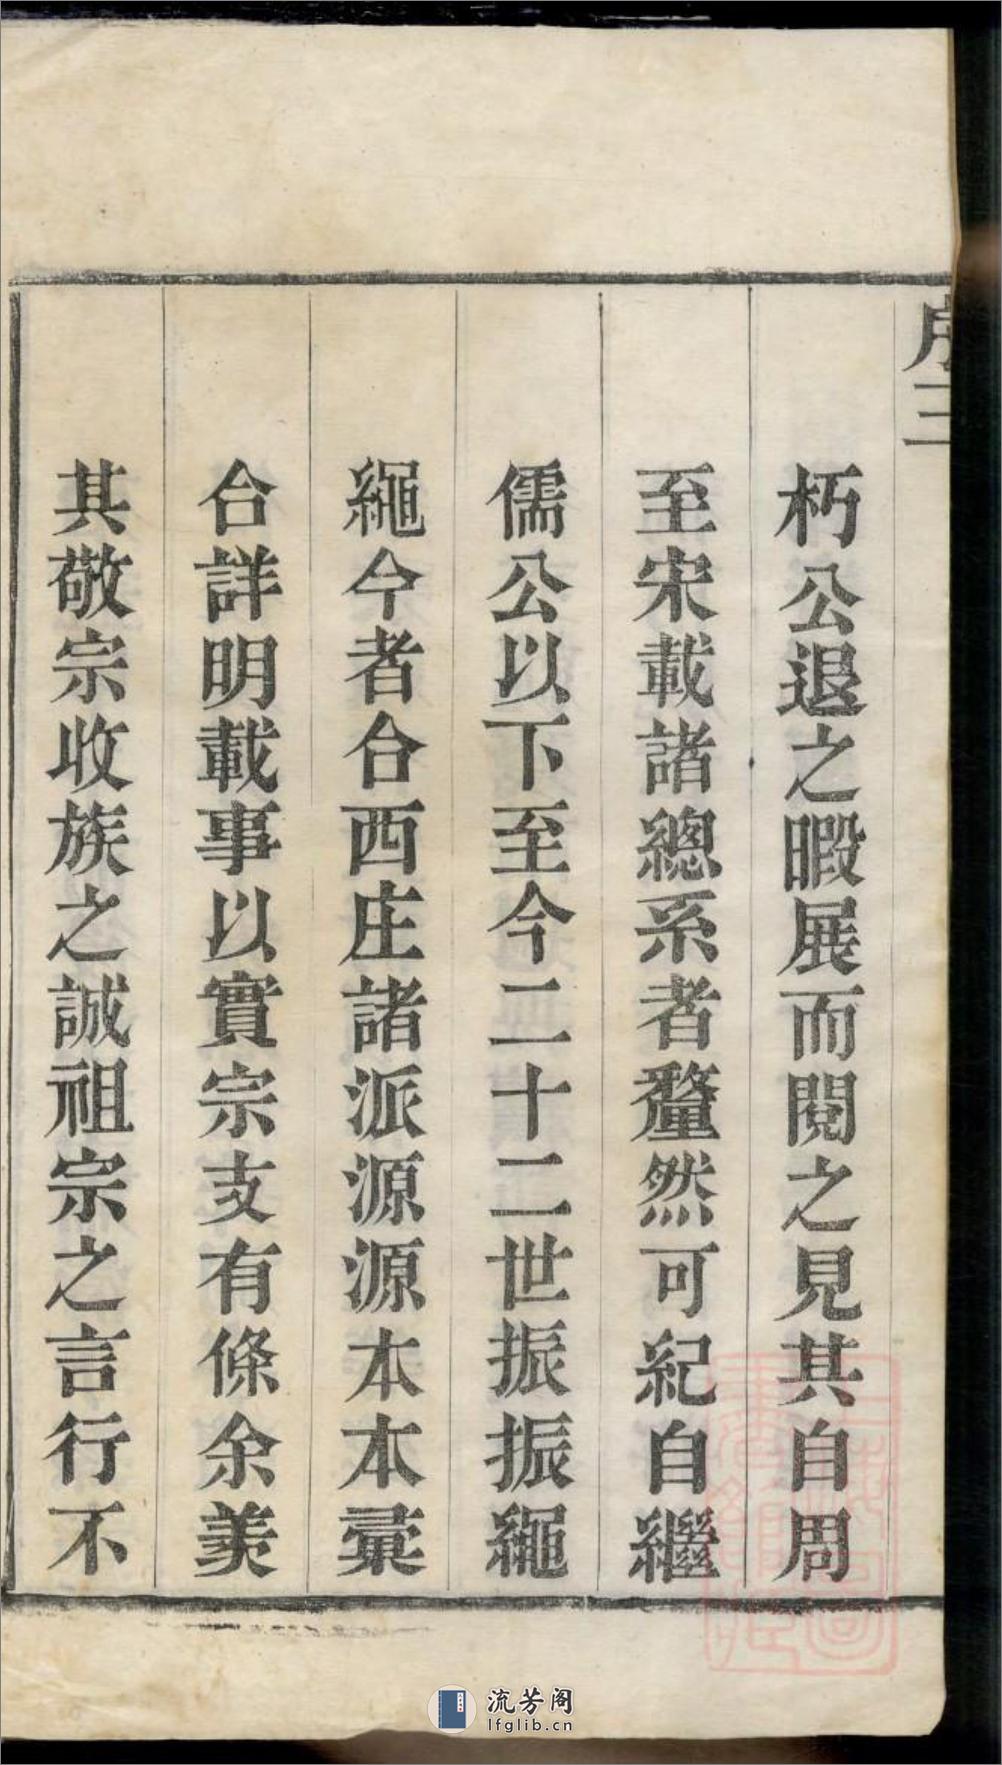 序三
朽公退之暇展而閱之見其自周
至宋載諸總系者釐然可紀自繼
儒公以下至今二十二世振振繩
繩今者合西庄諸派源源本本彙
合詳明載事以實宗支有條余羨
其敬宗收族之誠祖宗之言行不
流芳阁
lfglib.cn